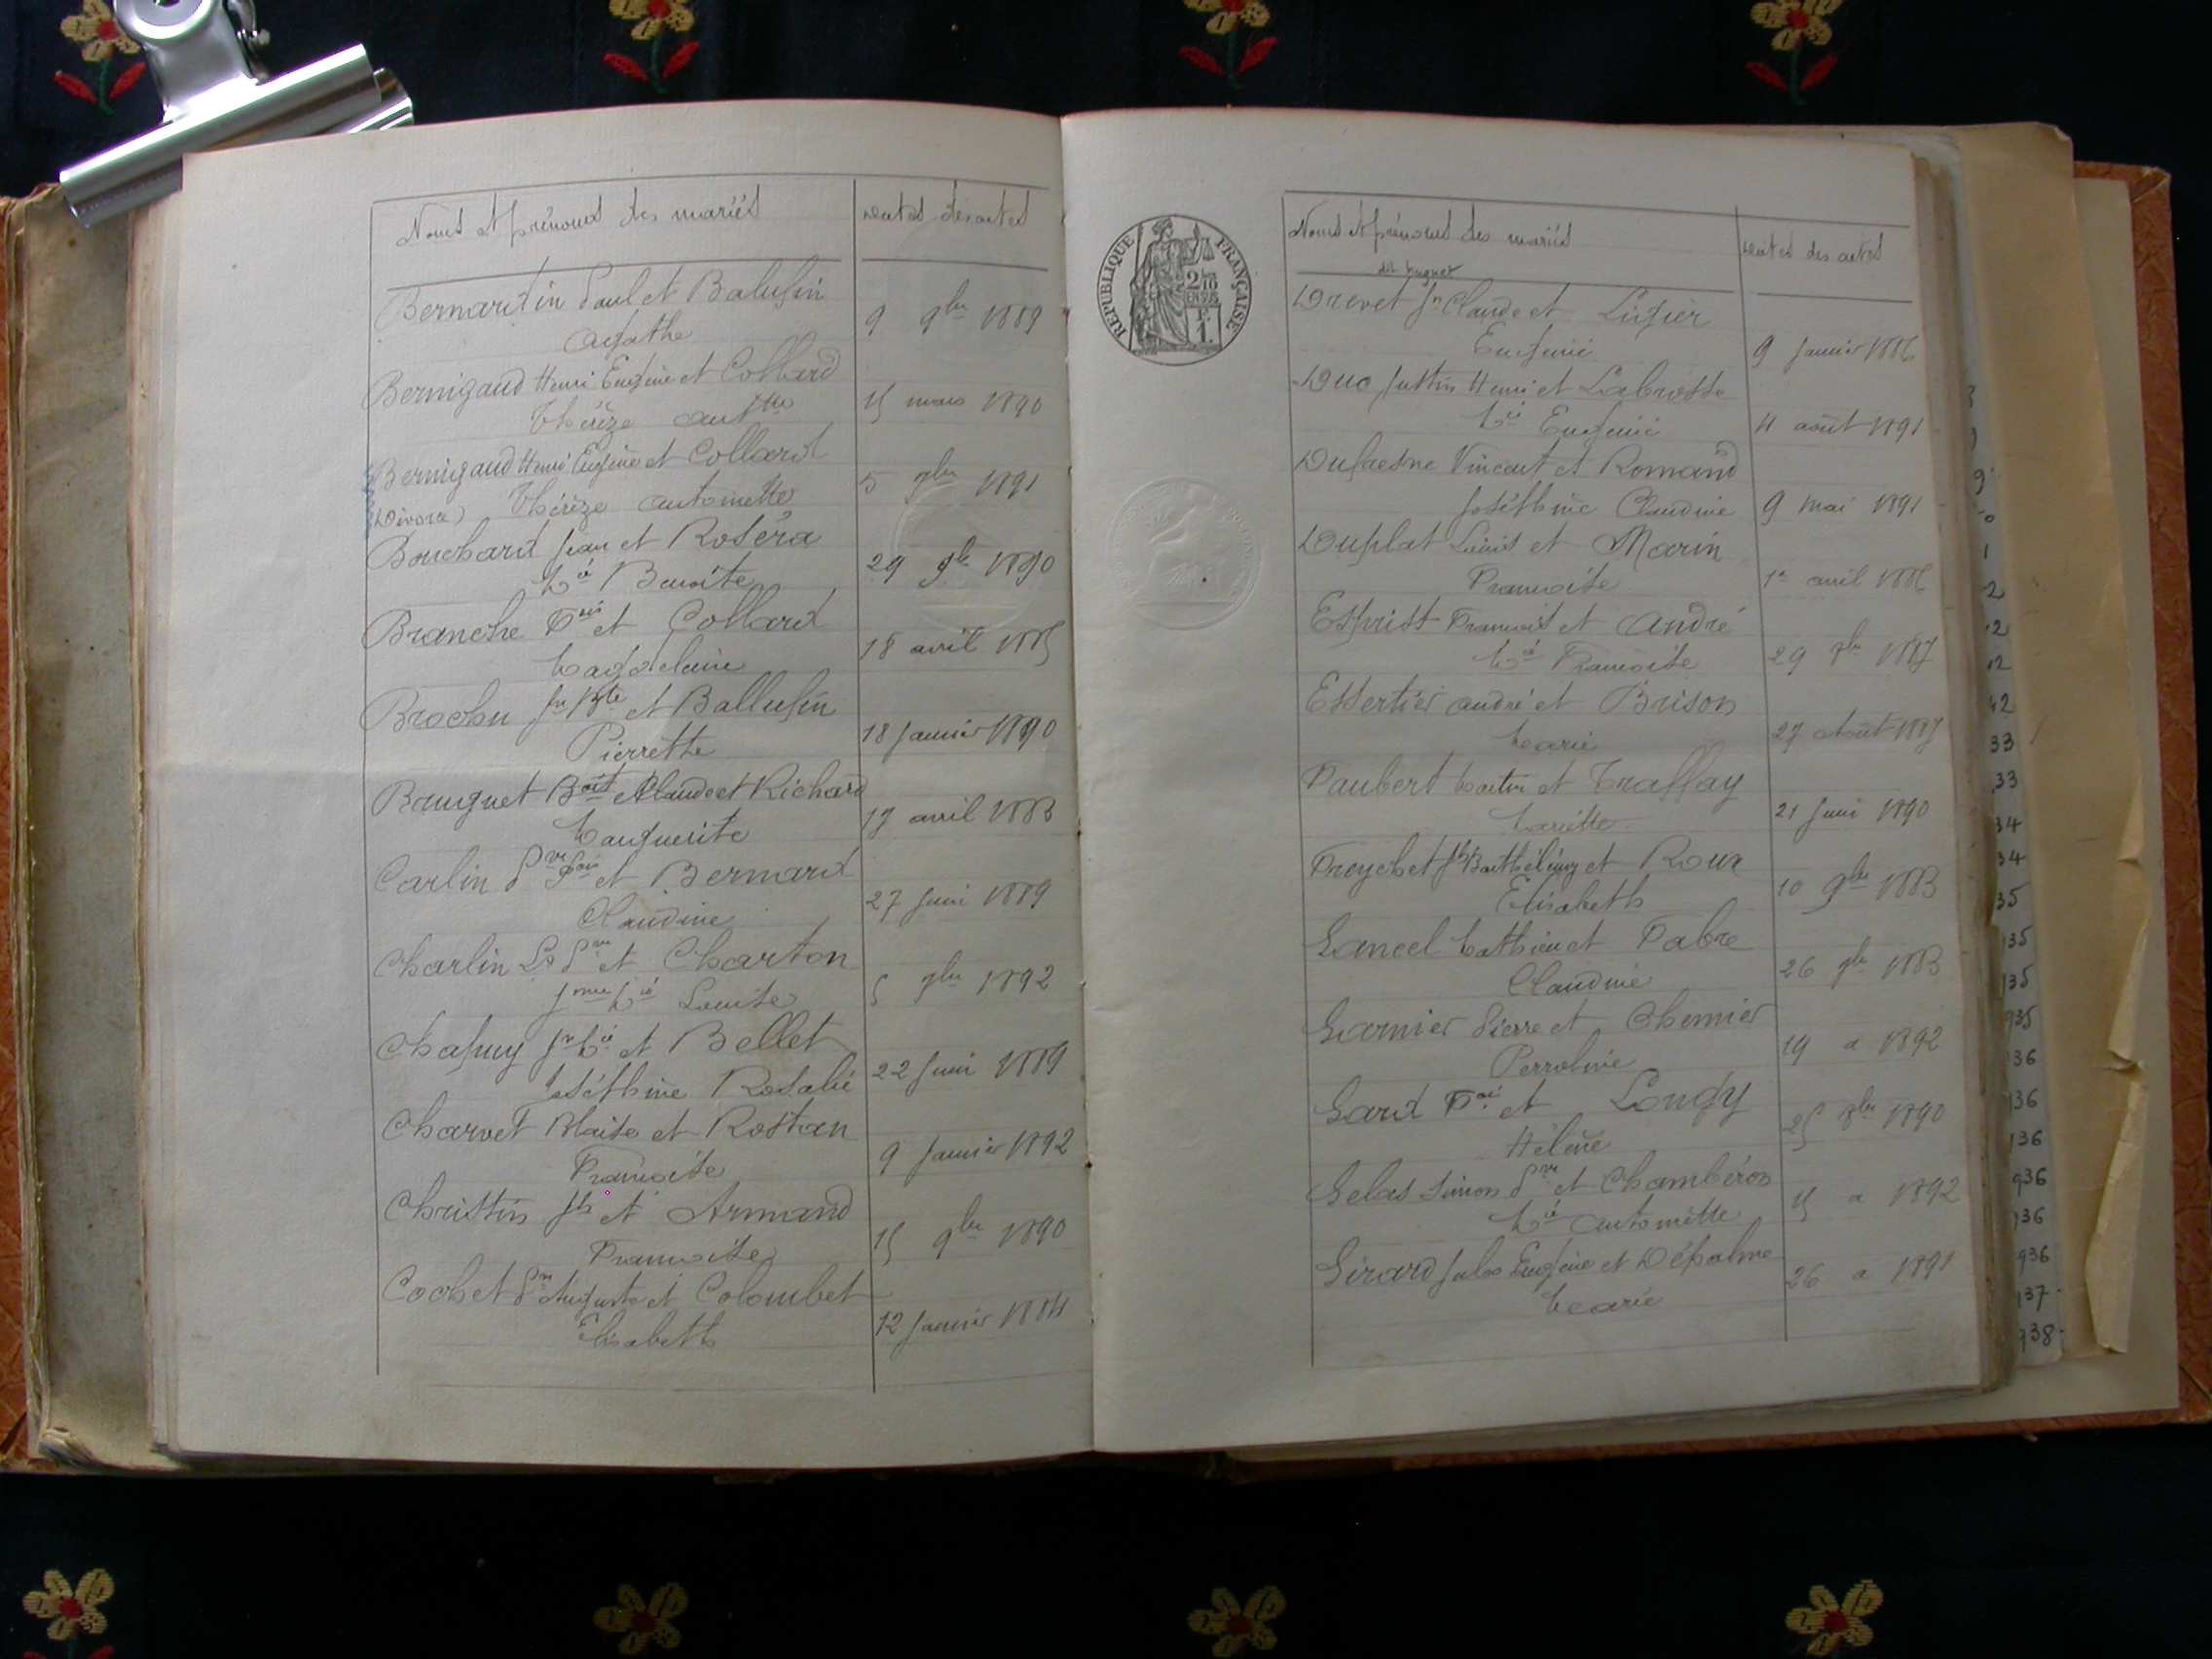 Noms et prénoms des mariés
Dates des actes
Bernardin Paul et Balufin
Agathe
9 9bre 1889
Bernigaud Henri Eugène et Collard
Thérèze Anttte
15 mars 1890
Bernigaud Henri Eugène et Collard
(Divorce) Thérèze Antoinette
5 1891
Bouchard Jean et Roséra
Mie Benoite
29 1890
Branche Fois et Collard
Magdelaine
18 avril 1885
Brochu Jn Bte et Ballufin
Pierrette
18 Janvier 1890
Bouguet Claude et Richard
Marguerite
17 avril 1883
Carlin Prre Fois et Bernard
Claudine
27 Juin 1889
Charlin Ls Prre et Charton
Jnne Mie Louise
5 1892
Chapuy Jn Mie et Bellet
Joséphine Rosalie
22 Juin 1889
Charvet Blaise et Rostan
Françoise
9 Janvier 1892
Christin Jh et Armand
Françoise
15 9bre 1890
Cochet Prre Auguste et Colombet
Elisabeth
12 Janvier 1884
REPUBLIQUE FRANÇAISE
2/10
EN SUS
1 F.
Noms et prénoms des mariés
Dates des actes
dit huguet
Drevet Jn Claude et Lugier
Eugénie
9 Janvier 1886
Duc Justin Henri et Labrosse
Mie Eugénie
11 août 1891
Dufresne Vincent et Romand
Joséphine Claudine
9 mai 1891
Duplat Louis et Marin
Françoise
1er avril 1886
Esprist François et André
Mie Françoise
29 1887
Essertier André et Brison
Marie
27 Août 1887
Faubert Martin et Traffay
Mariette
21 Juin 1890
Freychet Jh Barthélémy et Roux
Elisabeth
10 9bre 1883
Gancel Mathieu et Fabre
Claudine
26 1883
Garnier Pierre et Chemier
Perroline
19 a 1892
Gard Fois et Longy
Hélène
25 8bre 1890
Gelas Simon Prre et Chambéron
Mie Antoinette
15 a 1892
Girard Jules Eugène et Dépalme
Marie
26 a 1891
33
33
34
34
35
35
35
935
36
36
36
936
36
936
37
938